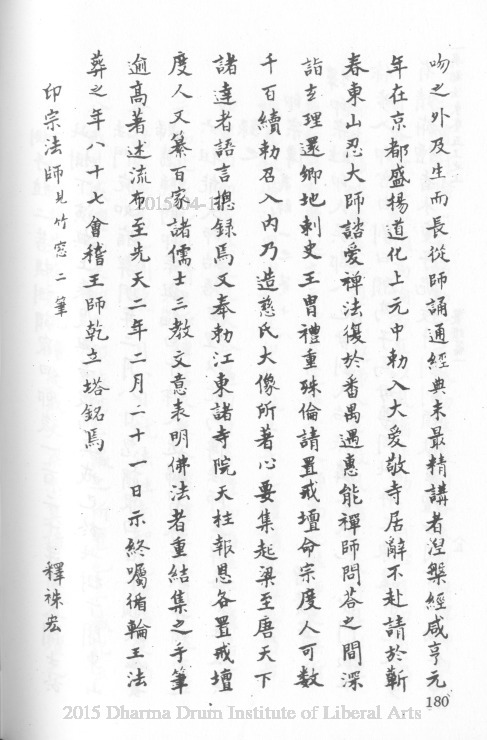 吻之外及生而長從師誦通經典末最精講者涅槃經咸亨元
年在京都盛揚道化上元中勅入大愛敬寺居辭不赴請於蘄
春東山忍大師諮受禪法復於番禺遇惠能禪師問答之間深
詣玄理還鄉地刺史王胄禮重殊倫請置戒壇命宗度人可數
千百續勅召入內乃造慈氏大像所著心要集起梁至唐天下
諸達者語言摠録焉又奉勅江東諸寺院天柱報恩各置戒壇
度人又纂百家諸儒士三教文意表明佛法者重結集之手筆
逾高著述流布至先天二年二月二十一日示終囑循輪王法
葬之年八十七會稽王師乾立塔銘焉
印宗法師見竹窓二筆
釋袾宏
180
2015 Dharma Drum Institute of Liberal Arts